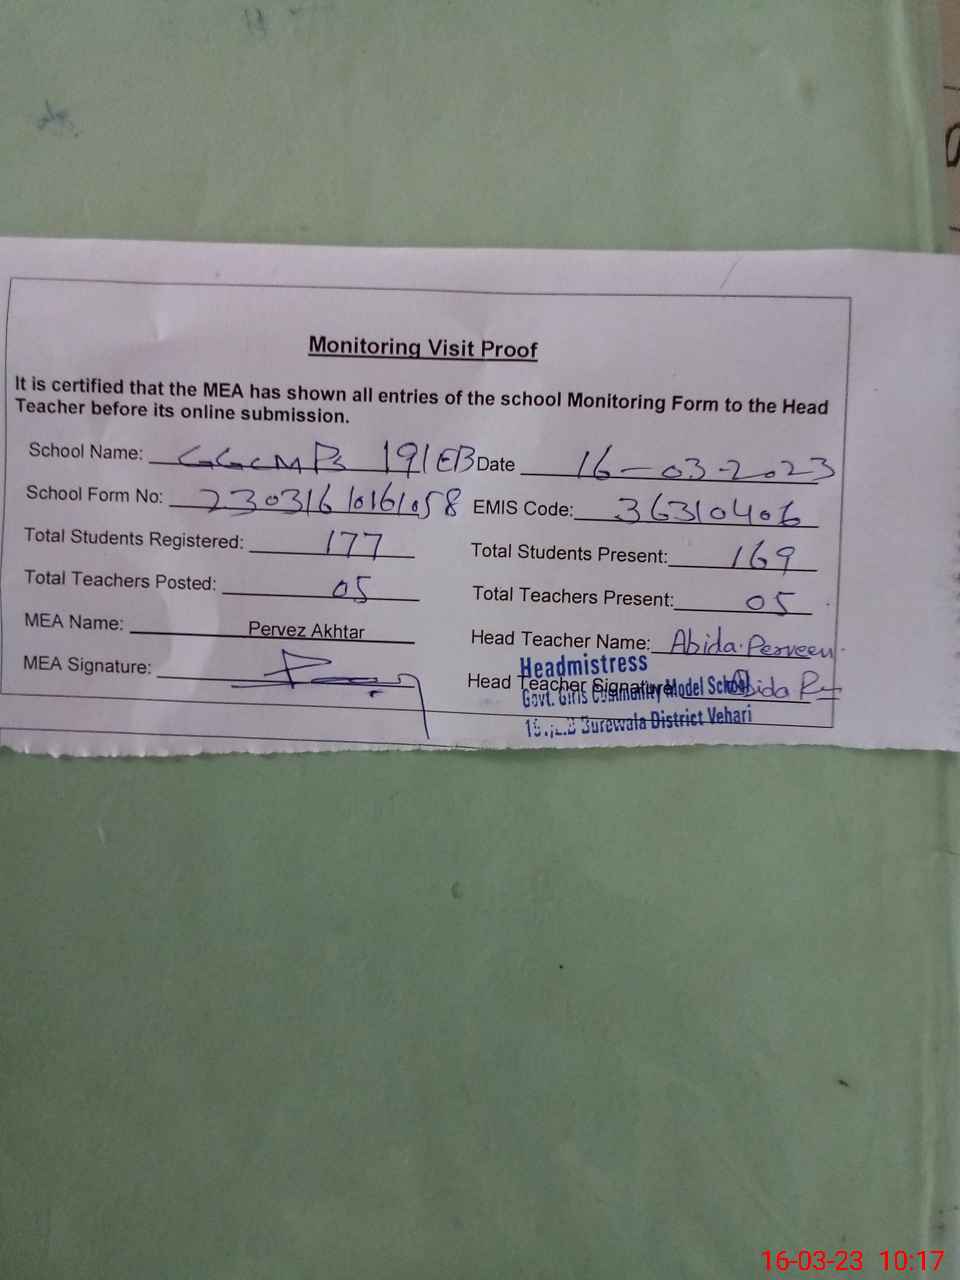 Monitoring Visit Proof
It is certified that the MEA has shown all entries of the school Monitoring Form to the Head
Teacher before its online submission.
School Name: GGCMPS 191EB Date 16-03-2023
School Form No: 23031610161058 EMIS Code: 36310406
Total Students Registered: 177 Total Students Present: 169
Total Teachers Posted: 05 Total Teachers Present: 05
MEA Name: Pervez Akhtar Head Teacher Name: Abida Perveen
MEA Signature: Head Teacher Signature Abida
Headmistress
Govt. Girls Community Model School
Burewala District Vehari
16-03-23 10:17